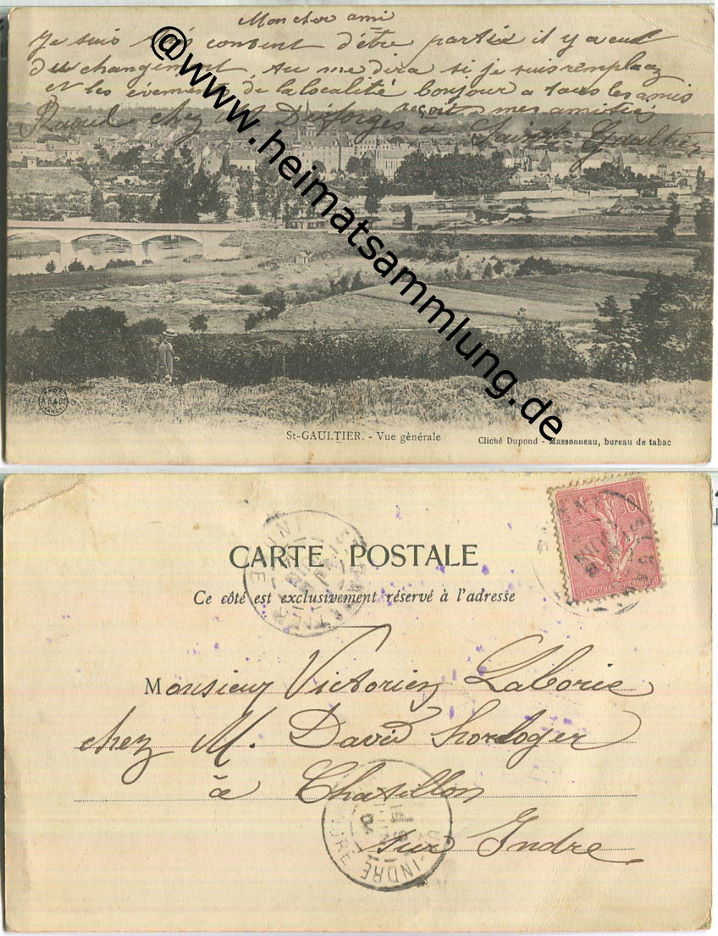 Mon cher ami
Je suis très content d'être partie il y a eut
du changement, tu me dira si je suis remplacez
et les evements de la localité bonjour a tous les amis
reçoit mes amitiés
Raoul chez M. Desforges à Saint-Gaultier
@www.heimatsammlung.de
St-GAULTIER. - Vue générale
Cliché Dupond - Massonneau, bureau de tabac
CARTE POSTALE
Ce côté est exclusivement réservé à l'adresse
Monsieur Victorien Laborie
chez M. David horloger
à Chatillon
sur Indre